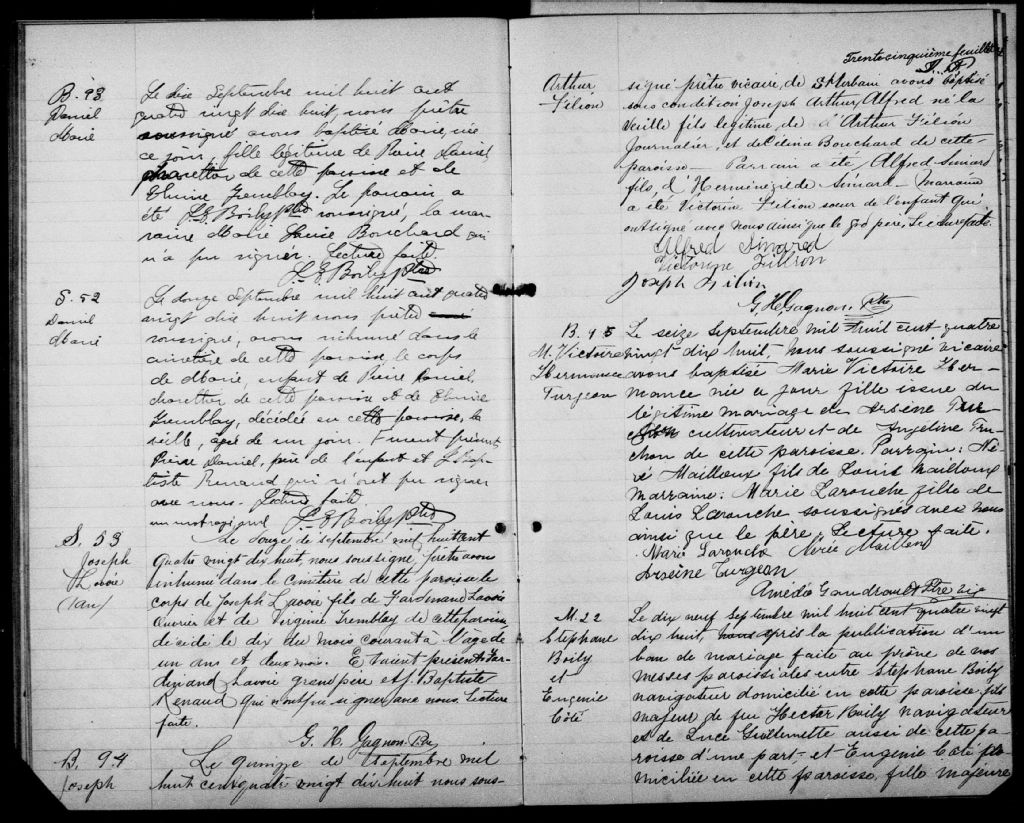 B. 93
Daniel
Marie
Le dix Septembre mil huit cent
quatre vingt dix huit, nous prêtre
soussigné avons baptisé Marie, née
ce jour, fille légitime de Pierre Daniel
charettier de cette paroisse et de
Elmire Tremblay. Le parrain a
été L. E. Boily Ptre soussigné, la mar-
raine Marie Louise Bouchard qui
n'a pu signer. Lecture faite.
L. E. Boily Ptre
S. 52
Daniel
Marie
Le douze Septembre mil huit cent quatre
vingt dix huit nous prêtre
soussigné, avons inhumé dans le
cimetière de cette paroisse, le corps
de Marie, enfant de Pierre Daniel,
charettier de cette paroisse et de Elmire
Tremblay, décédée en cette paroisse, la
veille, agée de un jour. Furent présents
Pierre Daniel, père de l'enfant et J. Bap-
tiste Renaud qui n'ont pu signer
avec nous. Lecture faite
un mot rayé nul
L. E. Boily Ptre
S. 53
Joseph
Lavoie
(1 an)
Le douze de septembre mil huit cent
Quatre vingt dix huit, nous soussigné prêtre avons
inhumé dans le cimitière de cette paroisse le
corps de Joseph Lavoie fils de Ferdinand Lavoie
Ouvrier et de Virginie Tremblay de cette paroisse
décédé le dix du mois courant à l'age de
un ans et deux mois. Etaient présents Fer-
dinand Lavoie grand père et J. Baptiste
Renaud qui n'ont pu signer avec nous. Lecture
faite.
G. H. Gagnon Ptre
B. 94
Joseph
Le quinze de Septembre mil
huit cent quatre vingt dix huit nous sous-
Trente cinquième feuillet
Arthur
Filion
signé prêtre vicaire, de St Urbain avons baptisé
sous condition Joseph Arthur Alfred né la
veille fils légitime, de d'Arthur Filion
Journalier, et de Célina Bouchard de cette
paroisse. Parrain a été Alfred Simard
fils, d'Herménégilde Simard - Marraine
a été Victorine Filion soeur de l'enfant qui
ont signé avec nous ainsi que le gd père, Lecture faite.
Alfred Simard
Victorine Fillion
Joseph Filion
G. H. Gagnon. Ptre
B. 95
M. Victoire
Hermance
Turgeon
Le seize Septembre mil huit cent quatre
vingt dix huit, nous soussigné vicaire
avons baptisé Marie Victoire Her-
mance née ce jour fille issue du
légitime mariage de Arsène Tur-
geon cultivateur et de Angeline Tru-
chon de cette paroisse. Parrain: Né-
ré Mailloux fils de Louis Mailloux
Marraine: Marie Larouche fille de
Louis Larouche soussignés avec nous
ainsi que le père. Lecture faite.
Marie Larouche Nérée Mailloux
Arseine Turgeon
Amédé Gaudrault Ptre Vic
M. 22
Stéphane
Boily
et
Eugénie
Côté
Le dix neuf Septembre mil huit cent quatre vingt
dix huit, après la publication d'un
ban de mariage faite au prône de nos
messes paroissiales entre Stéphane Boily
navigateur domicilié en cette paroisse fils
majeur de feu Hector Boily navigateur
et de Luce Guillemette aussi de cette pa-
roisse d'une part, et Eugénie Côté do-
miciliée en cette paroisse, fille majeure